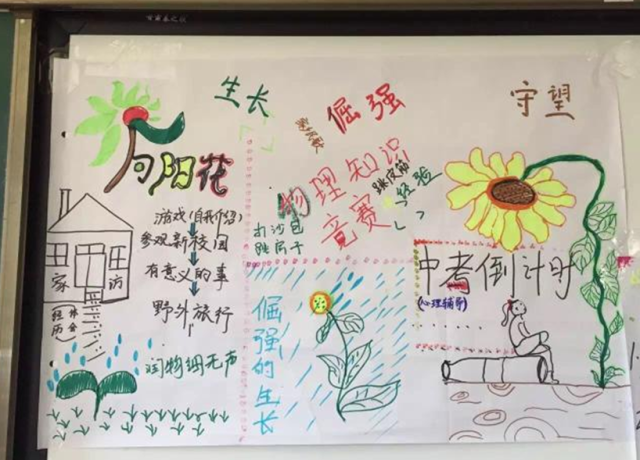 生长
倔强
守望
向阳花
物理知识
竞赛
跳皮筋
经验
打沙包
跳房子
游戏(自我介绍)
参观新校园
有意义的事
野外旅行
家访
经历
体会
润物细无声
倔强的生长
中考倒计时
(心理辅导)